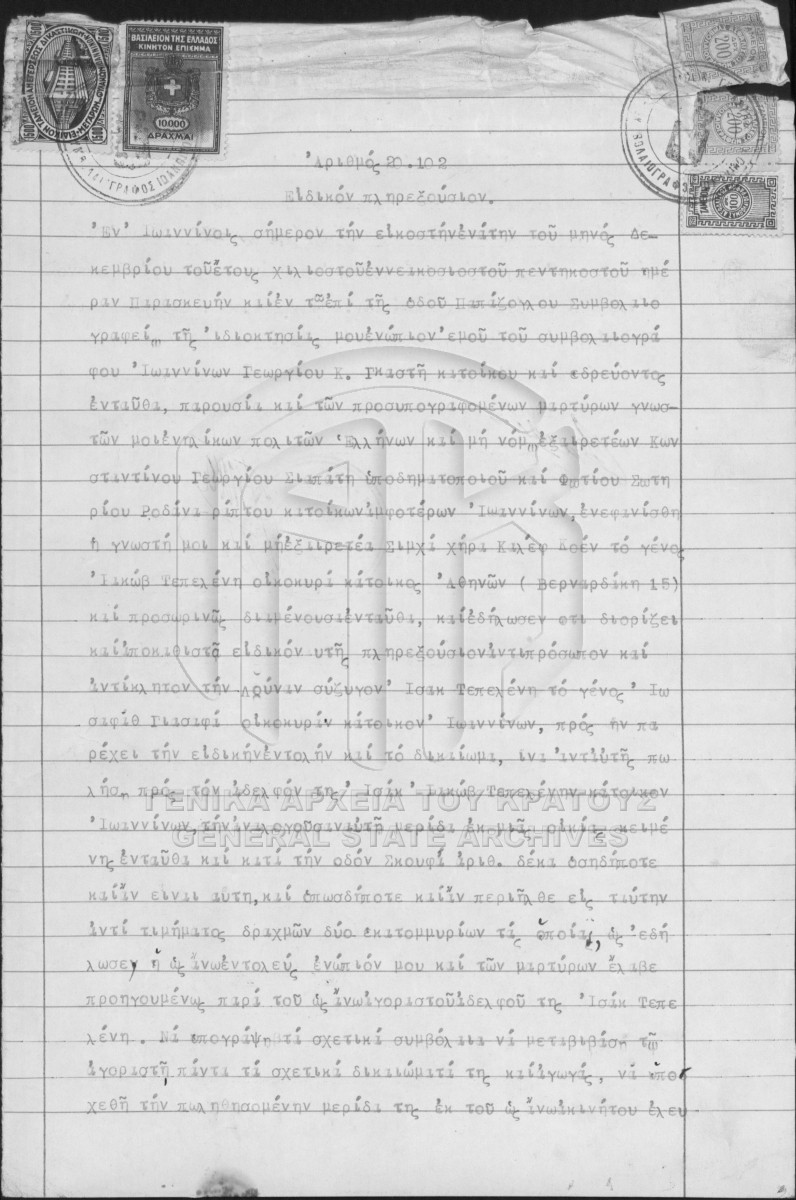 ΒΑΣΙΛΕΙΟΝ ΤΗΣ ΕΛΛΑΔΟΣ
ΚΙΝΗΤΟΝ ΕΠΙΣΗΜΑ
10.000
ΔΡΑΧΜΑΙ
500
500
200
200
100
Ἀριθμός 20.102
Εἰδικόν πληρεξούσιον.
Ἐν Ἰωαννίνοις σήμερον τήν εἰκοστήνἐνάτην τοῦ μηνός Δε-
κεμβρίου τοῦἔτους χιλιοστοῦἐννεακοσιοστοῦ πεντηκοστοῦ ἡμέ
ραν Παρασκευήν καίἐν τῶ ἐπί τῆς ὁδοῦ Παπάζογλου Συμβολαιο
γραφείῳ τῆς ἰδιοκτησίας μουἐνώπιον ἐμοῦ τοῦ συμβολαιογρά
φου Ἰωαννίνων Γεωργίου Κ. Γκαστῆ κατοίκου καί ἑδρεύοντος
ἐνταῦθα, παρουσία καί τῶν προσυπογραφομένων μαρτύρων γνωσ-
τῶν μοιἐνηλίκων πολιτῶν Ἑλλήνων καί μή νόμῳἐξαιρετέων Κων
σταντίνου Γεωργίου Σιαπάτη ὑποδηματοποιοῦ καί Φωτίου Σωτη
ρίου Ροδίνα ράπτου κατοίκωνἀμφοτέρων Ἰωαννίνων, ἐνεφανίσθη
ἡ γνωστή μοι καί μήἐξαιρετέα Σιμχά χήρα Καλέφ Κοέν τό γένος
Ἰακώβ Τεπελένη οἰκοκυρά κάτοικος Ἀθηνῶν ( Βερναρδάκη 15)
καί προσωρινῶς διαμένουσαἐνταῦθα, καίἐδήλωσεν ὅτι διορίζει
καίἀποκαθιστᾶ εἰδικόν αὐτῆς πληρεξούσιονἀντιπρόσωπον καί
ἀντίκλητον τήν Λούναν σύζυγον Ἰσάκ Τεπελένη τό γένος Ἰω
σαφάθ Γιασαφά οἰκοκυράν κάτοικον Ἰωαννίνων, πρός ἥν πα
ρέχει τήν εἰδικήνἐντολήν καί τό δικαίωμα, ἵνα ἀντ'αὐτῆς πω
λήσῃ πρός τόν ἀδελφόν της Ἰσάκ Ἰακώβ Τεπελένην κάτοικον
Ἰωαννίνων, τήνἀναλογοῦσαναὐτῆ μερίδα ἐκ μιᾶς οἰκίας κειμέ
νηςἐνταῦθα καί κατά τήν ὁδόν Σκουφᾶ ἀριθ. δέκα ὁσηδήποτε
καίἄν εἶναι αὕτη, καί ὁπωσδήποτε καίἄν περιῆλθε εἰς ταύτην
ἀντί τιμήματος δραχμῶν δύο ἑκατομμυρίων τάς ὁποίας, ὡς ἐδή
λωσεν ἡ ὡς ἄνωἐντολεύς ἐνώπιόν μου καί τῶν μαρτύρων ἔλαβε
προηγουμένως παρά τοῦ ὡς ἄνωἀγοραστοῦἀδελφοῦ της Ἰσάκ Τεπε
λένη. Νά ὑπογράψη τά σχετικά συμβόλαια νά μεταβιβάσῃ τῶ
ἀγοραστῆ, πάντα τά σχετικά δικαιώματά της καίἀγωγάς, νά ὑπο
χεθῆ τήν πωληθησομένην μερίδα της ἐκ τοῦ ὡς ἄνωἀκινήτου ἐλευ
ΓΕΝΙΚΑ ΑΡΧΕΙΑ ΤΟΥ ΚΡΑΤΟΥΣ
GENERAL STATE ARCHIVES